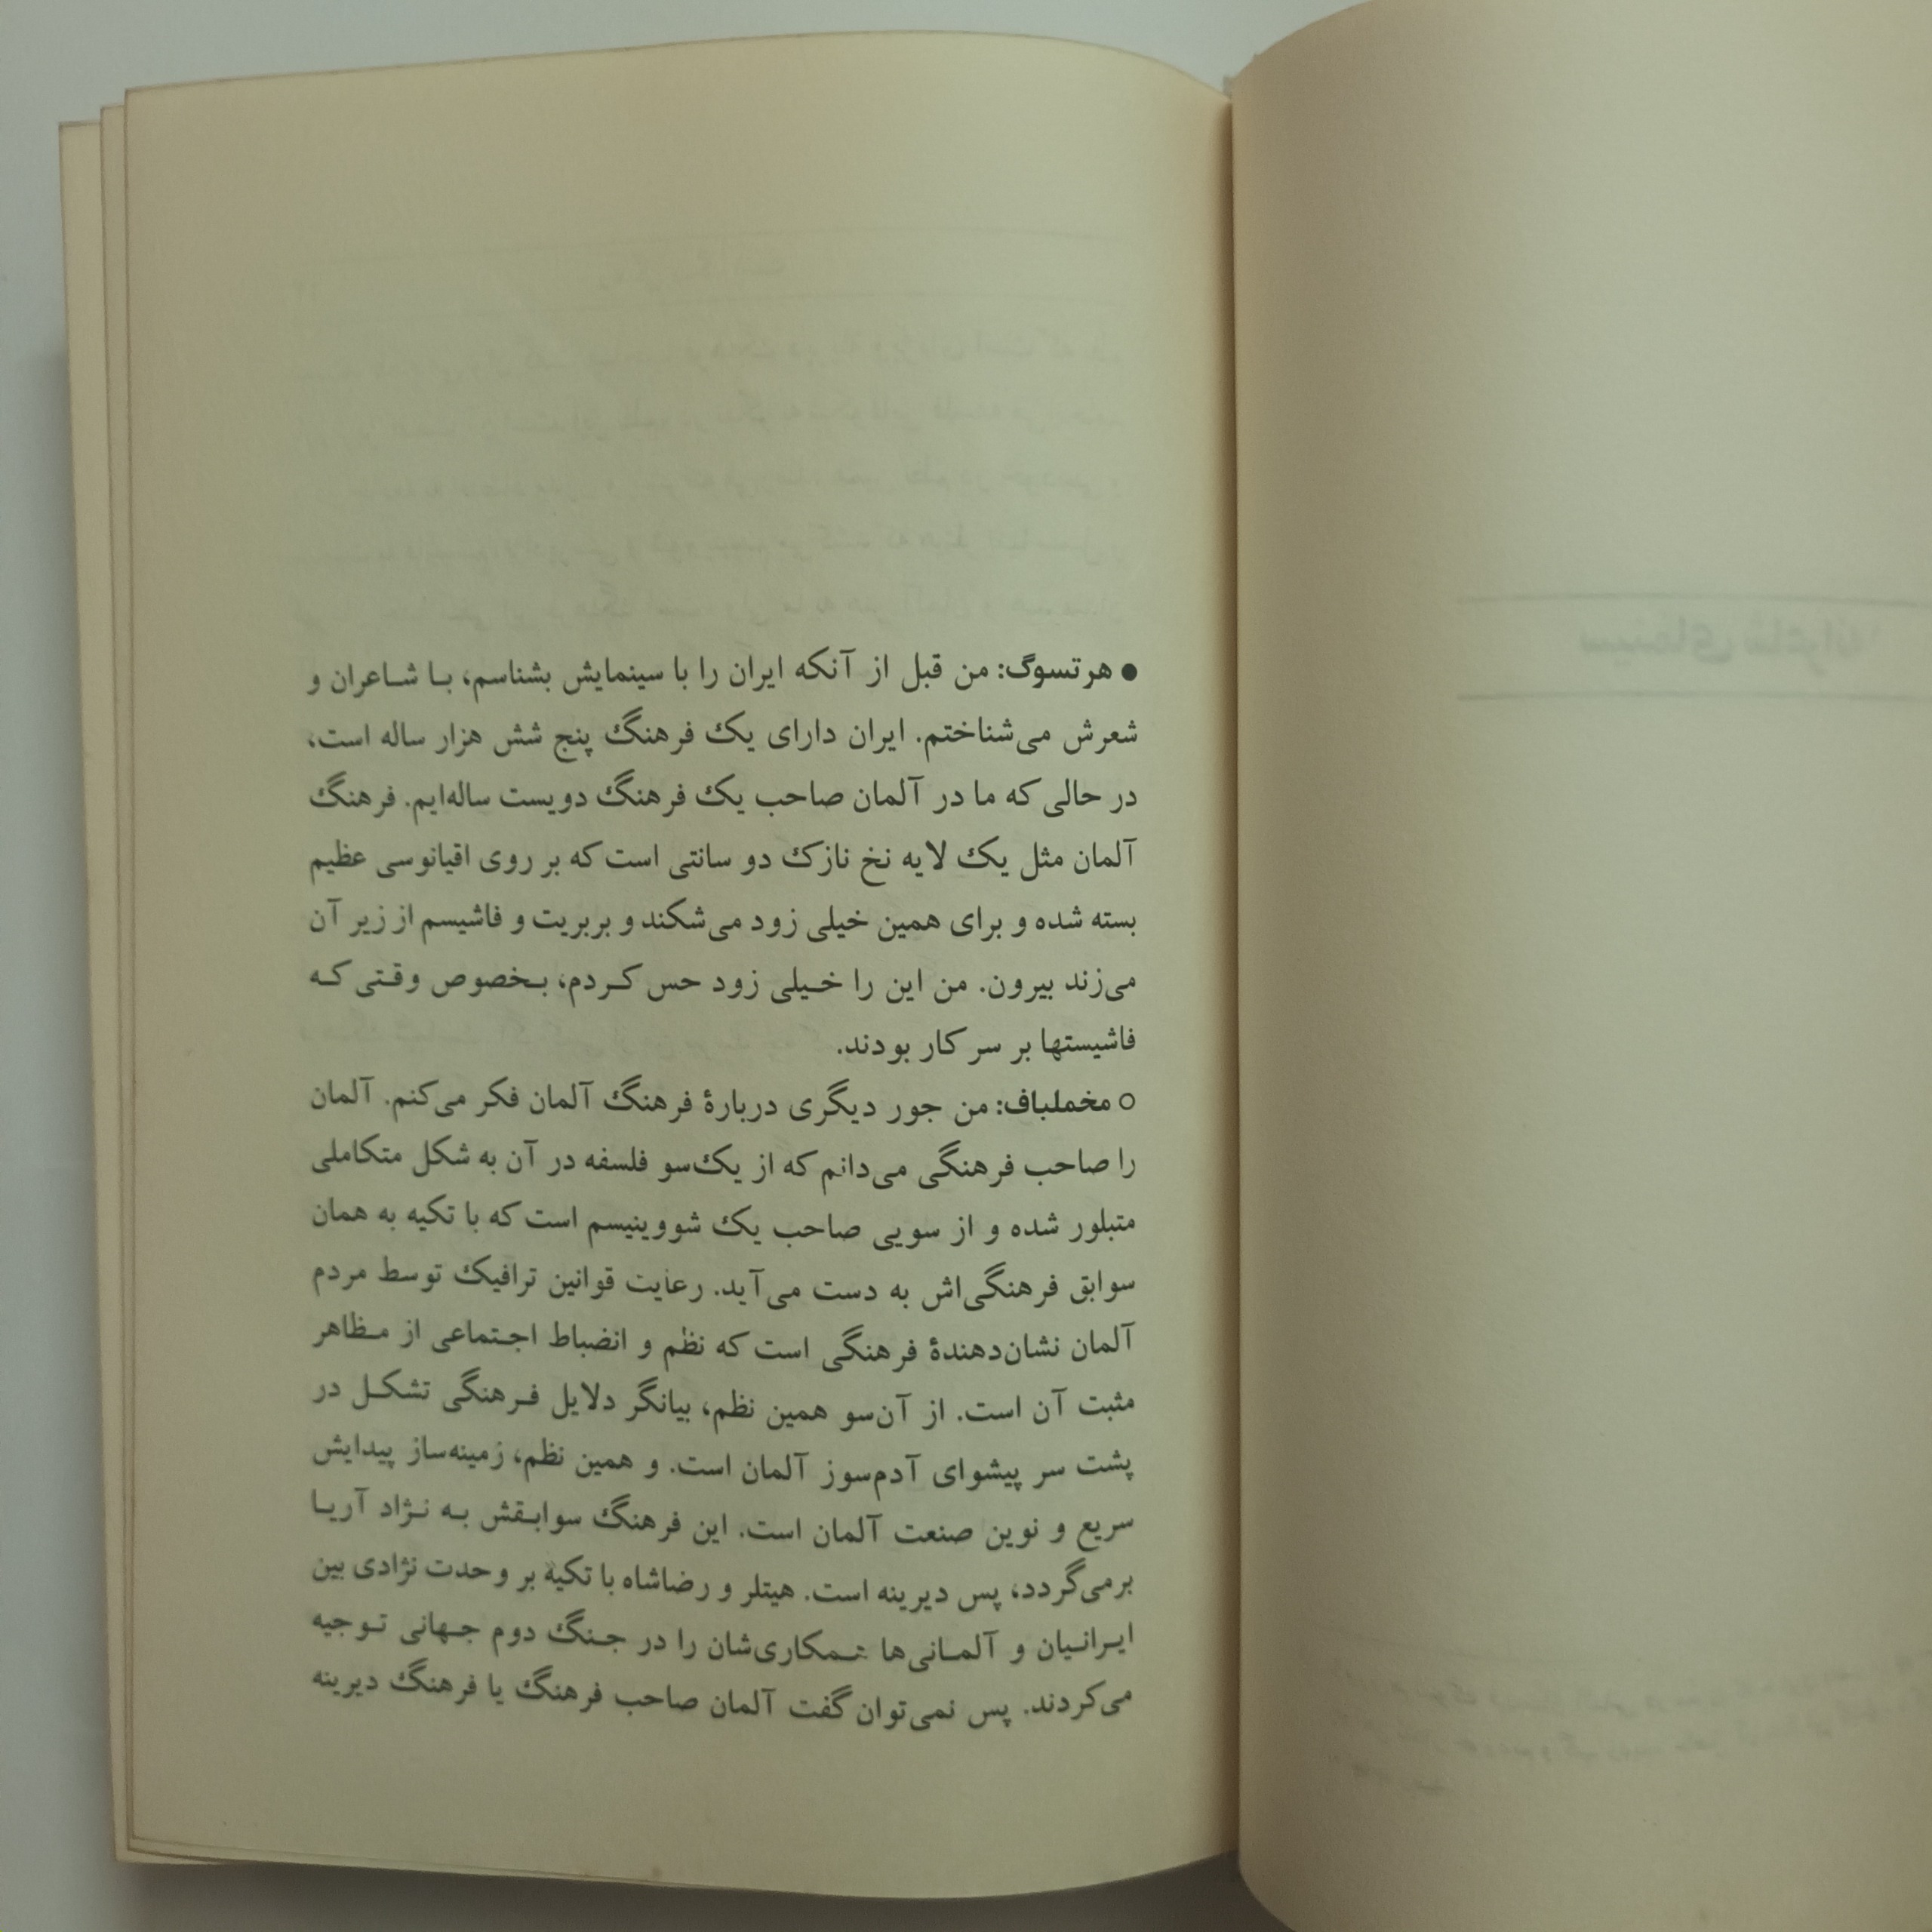 ● هرتسوگ: من قبل از آنکه ایران را با سینمایش بشناسم، با شاعران و
شعرش می‌شناختم. ایران دارای یک فرهنگ پنج شش هزار ساله است،
در حالی که ما در آلمان صاحب یک فرهنگ دویست ساله‌ایم. فرهنگ
آلمان مثل یک لایه نخ نازک دو سانتی است که بر روی اقیانوسی عظیم
بسته شده و برای همین خیلی زود می‌شکند و بربریت و فاشیسم از زیر آن
می‌زند بیرون. من این را خیلی زود حس کردم، بخصوص وقتی که
فاشیستها بر سر کار بودند.
○ مخملباف: من جور دیگری دربارهٔ فرهنگ آلمان فکر می‌کنم. آلمان
را صاحب فرهنگی می‌دانم که از یک‌سو فلسفه در آن به شکل متکاملی
متبلور شده و از سویی صاحب یک شووینیسم است که با تکیه به همان
سوابق فرهنگی‌اش به دست می‌آید. رعایت قوانین ترافیک توسط مردم
آلمان نشان‌دهندهٔ فرهنگی است که نظم و انضباط اجتماعی از مظاهر
مثبت آن است. از آن‌سو همین نظم، بیانگر دلایل فرهنگی تشکل در
پشت سر پیشوای آدم‌سوز آلمان است. و همین نظم، زمینه‌ساز پیدایش
سریع و نوین صنعت آلمان است. این فرهنگ سوابقش به نژاد آریا
برمی‌گردد، پس دیرینه است. هیتلر و رضاشاه با تکیه بر وحدت نژادی بین
ایرانیان و آلمانی‌ها همکاری‌شان را در جنگ دوم جهانی توجیه
می‌کردند. پس نمی‌توان گفت آلمان صاحب فرهنگ یا فرهنگ دیرینه
سینمای شاعرانه